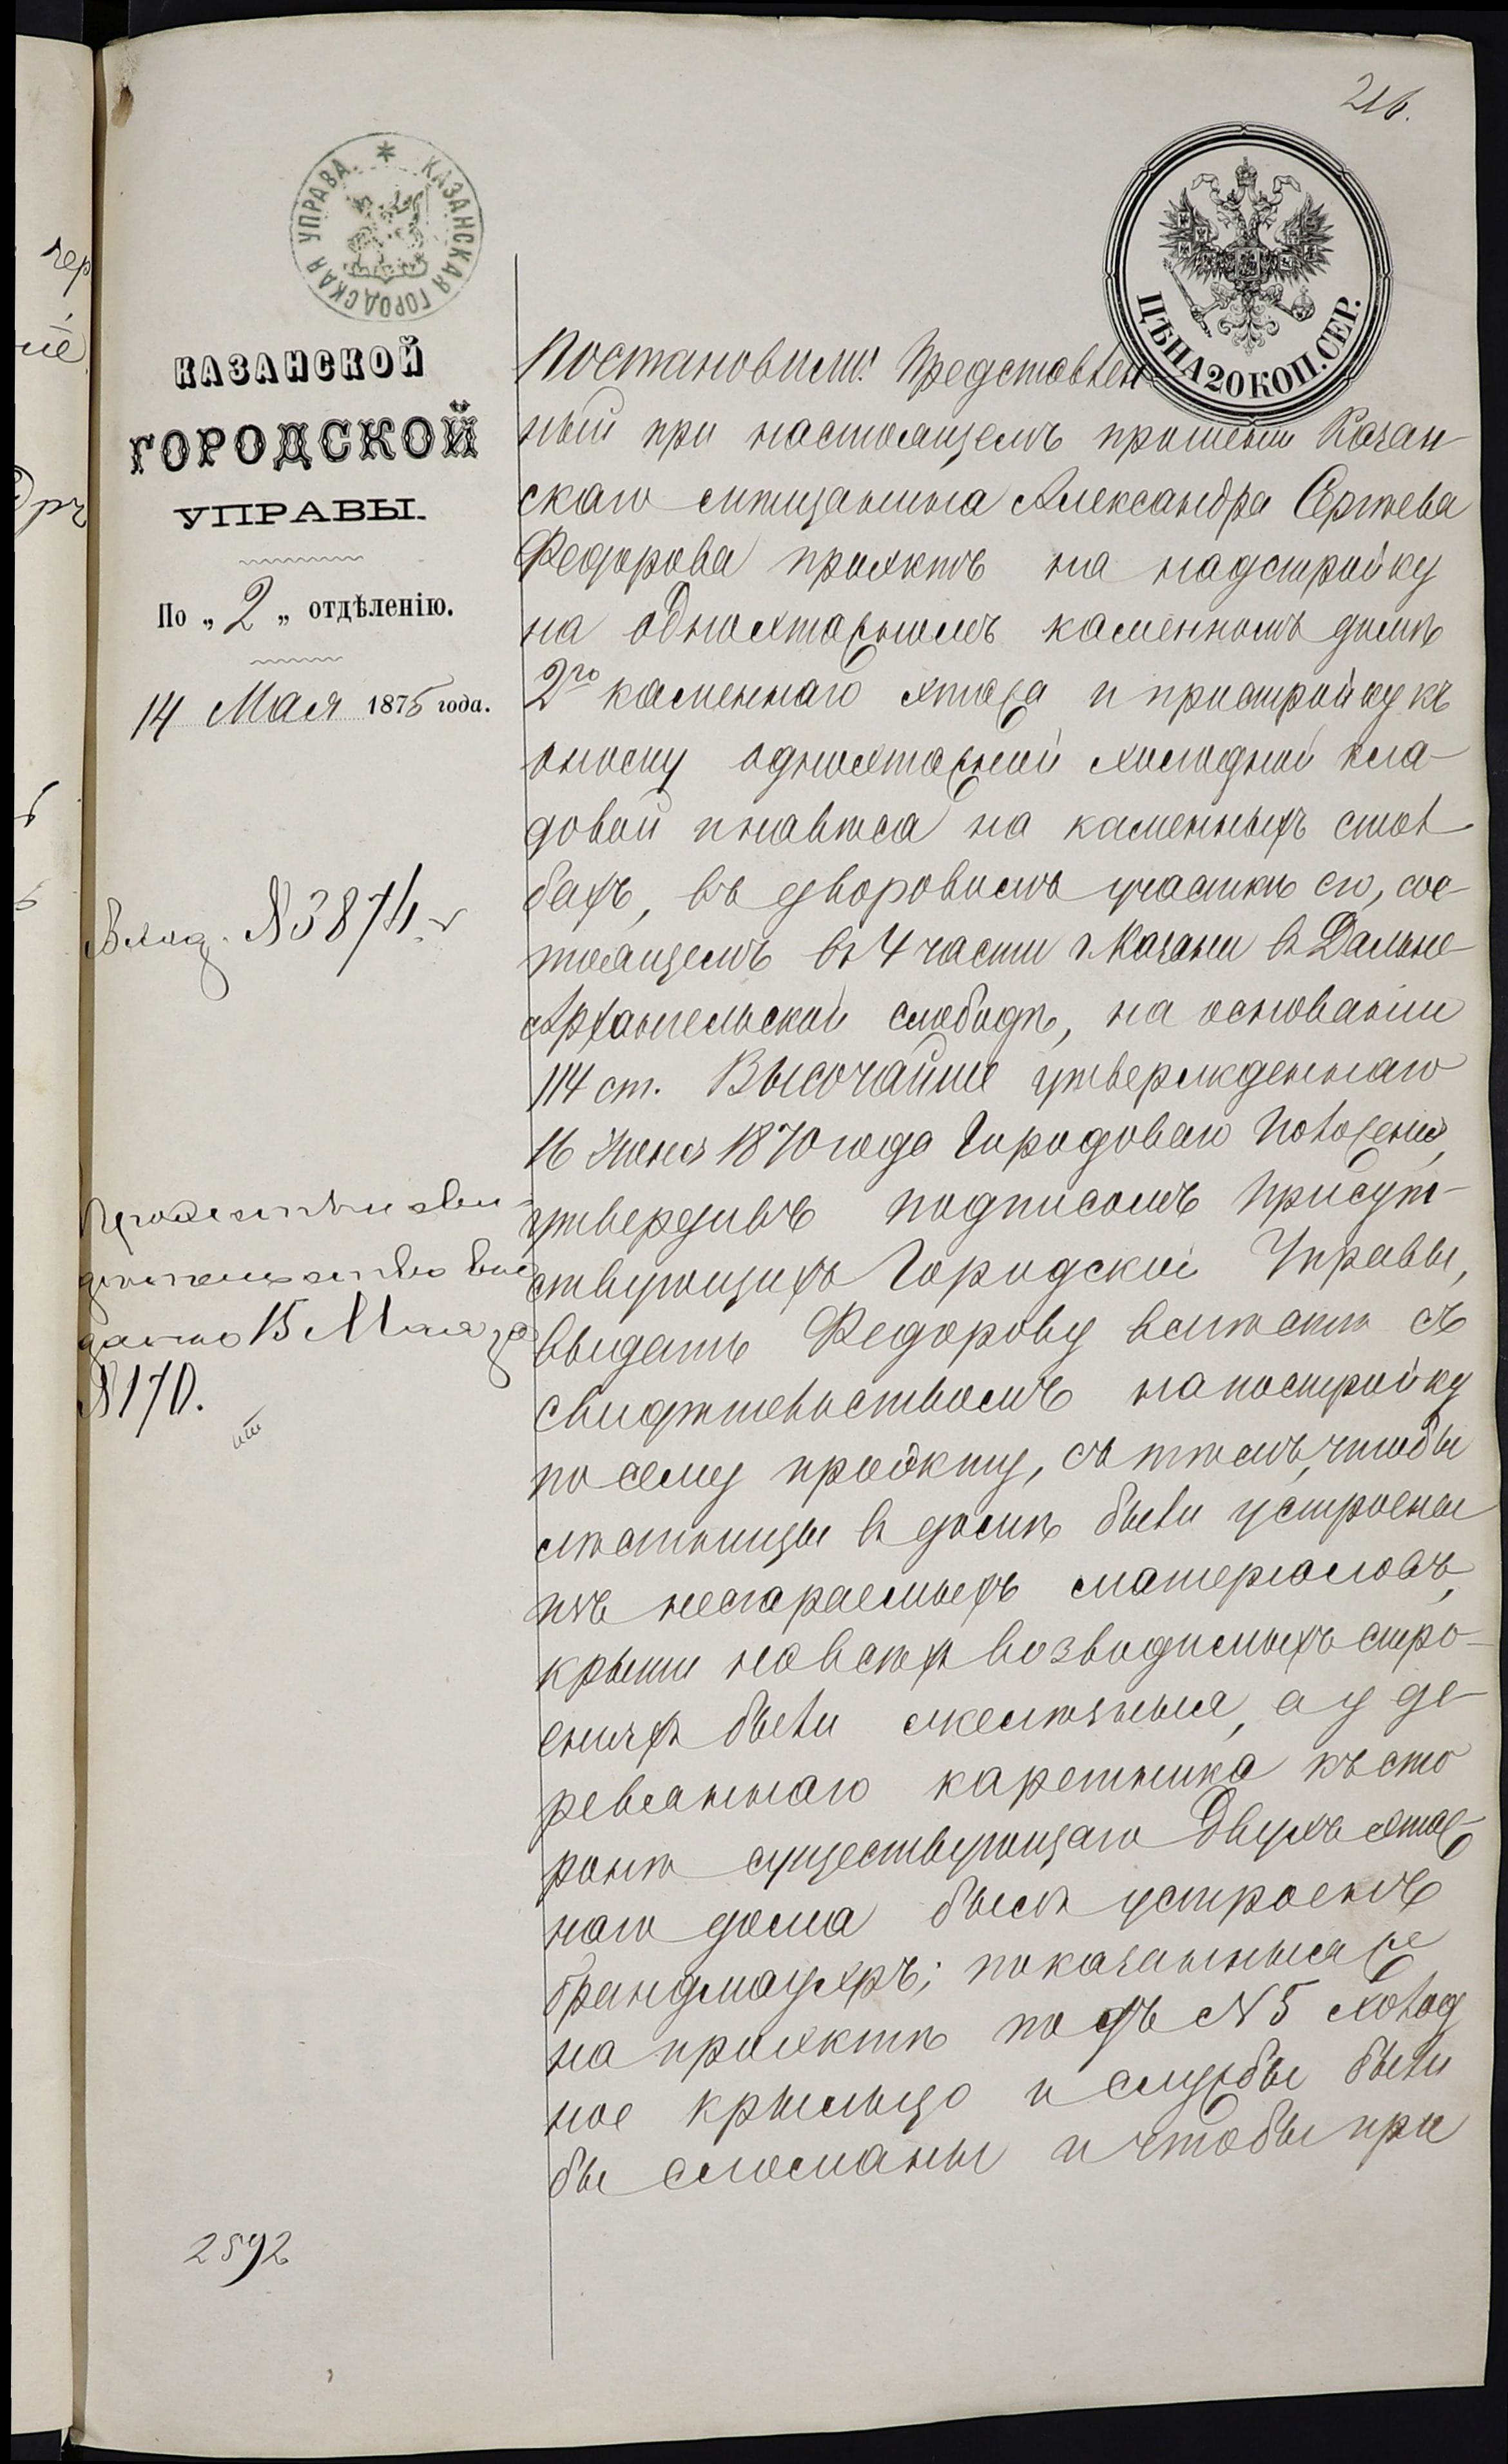 216.
КАЗАНСКАЯ ГОРОДСКАЯ УПРАВА.
ЦѢНА 20 КОП. СЕР.
КАЗАНСКОЙ
ГОРОДСКОЙ
УПРАВЫ.
По „ 2 „ отдѣленію.
14 Мая 1875 года.
Вход. № 3874.
свидѣтельство вы
дано 15 Мая за
№ 170.
2592
Постановили: Представлен
ный при настоящемъ прошеніи Казан-
скаго мѣщанина Александра Сергѣева
Федорова проэктъ на надстройку
на одноэтажномъ каменномъ домѣ
2го каменнаго этажа и пристройку къ
оному одноэтажной холодной кла-
довой и навѣса на каменныхъ стол
бахъ, въ дворовомъ участкѣ его, сос-
тоящемъ въ 4 части г. Казани въ Дальне-
Архангельской слободѣ, на основаніи
114 ст. Высочайше утвержденнаго
16 Іюня 1870 года Городоваго Положенія,
утвердивъ подписомъ присут-
ствующихъ Городской Управы,
выдать Федорову вмѣстѣ съ
свидѣтельствомъ на постройку
по сему проэкту, съ тѣмъ, чтобы
лѣстницы въ домѣ были устроены
изъ несгараемыхъ матерьяловъ,
крыши на всѣхъ возводимыхъ стро-
еніяхъ были желѣзныя, а у де-
ревяннаго каретника къ сто
ронѣ существующаго двухъ этаж-
наго дома былъ устроенъ
брандмауэръ; показанныя же
на проэктѣ подъ № 5 холод
ное крыльцо и службы были
бы сломаны и чтобы при